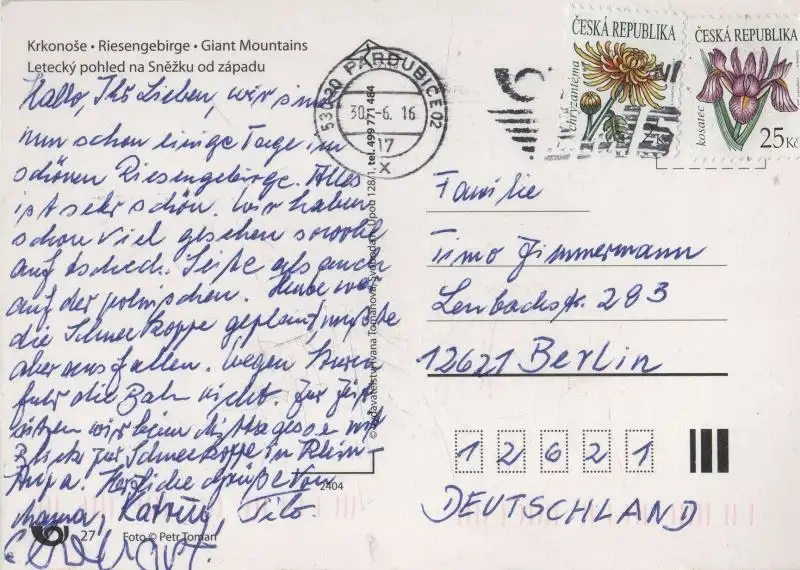 Krkonoše • Riesengebirge • Giant Mountains
Letecký pohled na Sněžku od západu
Hallo, Ihr Lieben, wir sind
nun schon einige Tage im
schönen Riesengebirge. Alles
ist sehr schön. Wir haben
schon viel gesehen sowohl
auf tschech. Seite als auch
auf der polnischen. Heute war
die Schneekoppe geplant, mußte
aber ausfallen. Wegen Sturm
fuhr die Bahn nicht. Zur Zeit
sitzen wir beim Mittagessen mit
Blick zur Schneekoppe in Klein-
Aupa. Herzliche Grüße von
Mama, Katrin,
27
Foto © Petr Toman
2404
© Vydavatelství Ivana Tomanová, Svoboda n. Úpou 128/1, tel. 499 771 484
530 20 PARDUBICE 02
30.-6. 16
17
x
ČESKÁ REPUBLIKA
chryzantéma
ČESKÁ REPUBLIKA
kosatec
25 Kč
Familie
Timo Zimmermann
Lenbachstr. 293
12621 Berlin
1 2 6 2 1
DEUTSCHLAND